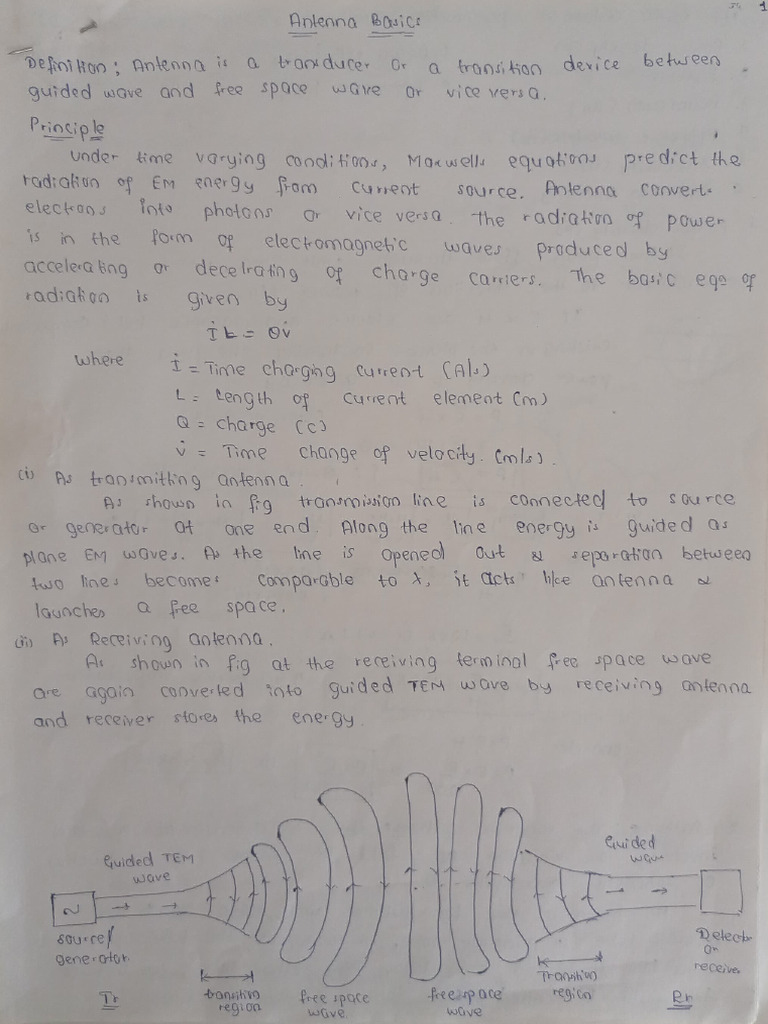 1
Antenna Basics
Definition: Antenna is a transducer or a transition device between
guided wave and free space wave or vice versa.
Principle
Under time varying conditions, Maxwells equations predict the
radiation of EM energy from current source. Antenna converts
electrons into photons or vice versa. The radiation of power
is in the form of electromagnetic waves produced by
accelerating or decelrating of charge carriers. The basic eqn of
radiation is given by
i̇ L = Q v̇
where İ = Time charging current (A/s)
L = Length of current element (m)
Q = charge (c)
v̇ = Time change of velocity. (m/s).
(i) As transmitting antenna.
As shown in fig transmission line is connected to source
or generator at one end. Along the line energy is guided as
plane EM waves. As the line is opened out & separation between
two lines becomes comparable to λ, it acts like antenna &
launches a free space.
(ii) As Receiving antenna.
As shown in fig at the receiving terminal free space wave
are again converted into guided TEM wave by receiving antenna
and receiver stores the energy.
Guided TEM
wave
Guided
wave
~
source/
generator.
Detector
or
receiver
transition
region
free space
wave.
free space
wave
Transition
region
Tr
Rr